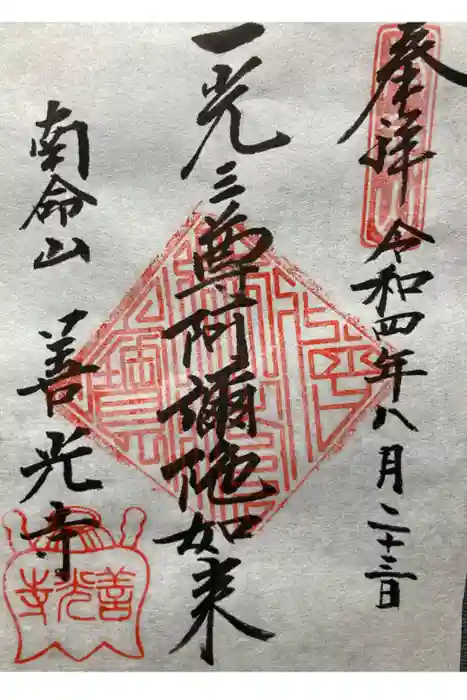 奉祥 令和四年八月二十三日
一光三尊阿彌陀如来
南命山 善光寺
善光寺